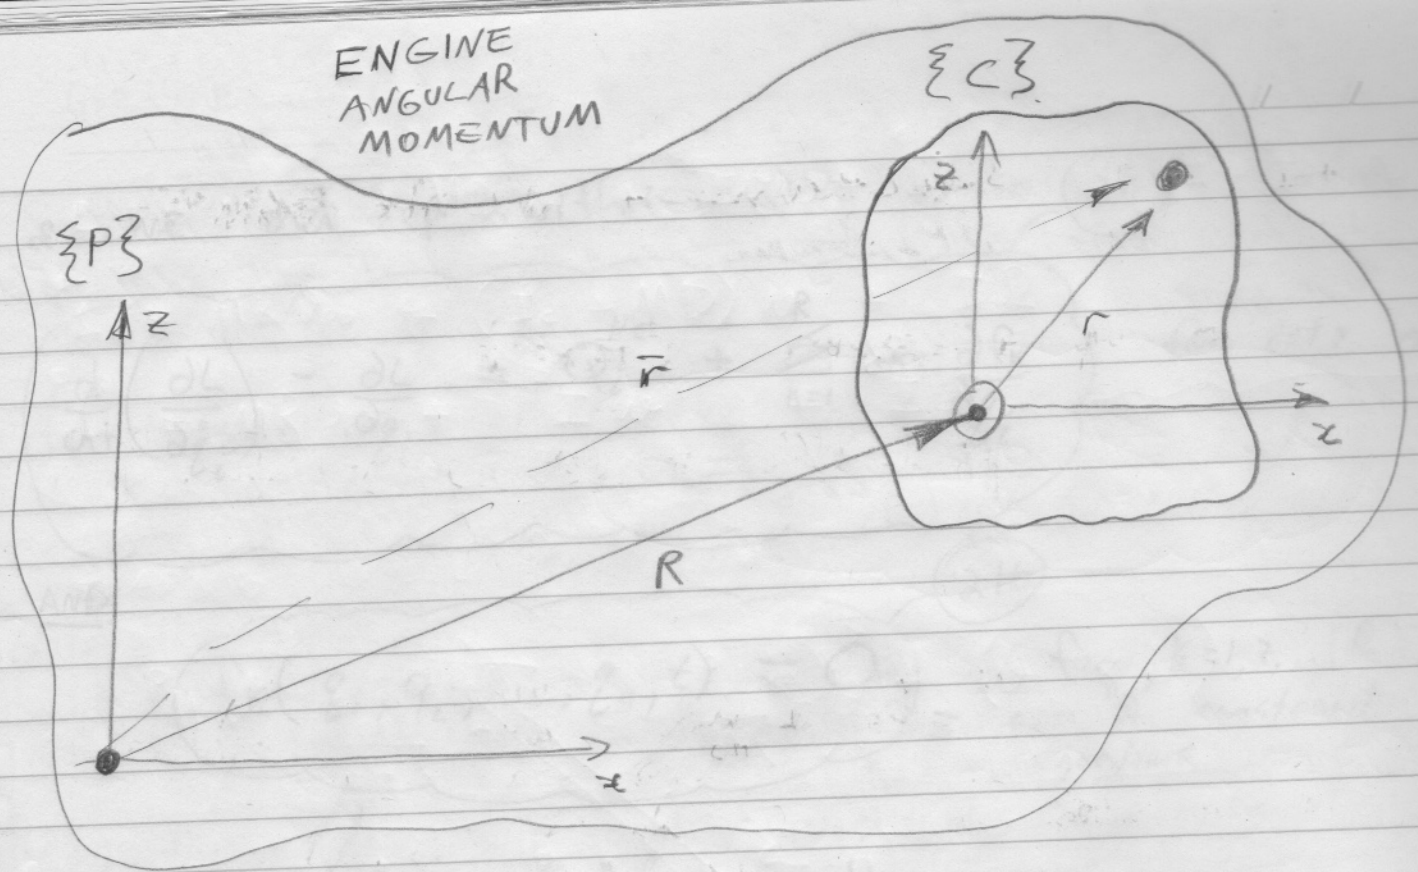 ENGINE
ANGULAR
MOMENTUM
{C}
z
{P}
z
r̄
r
x
R
x